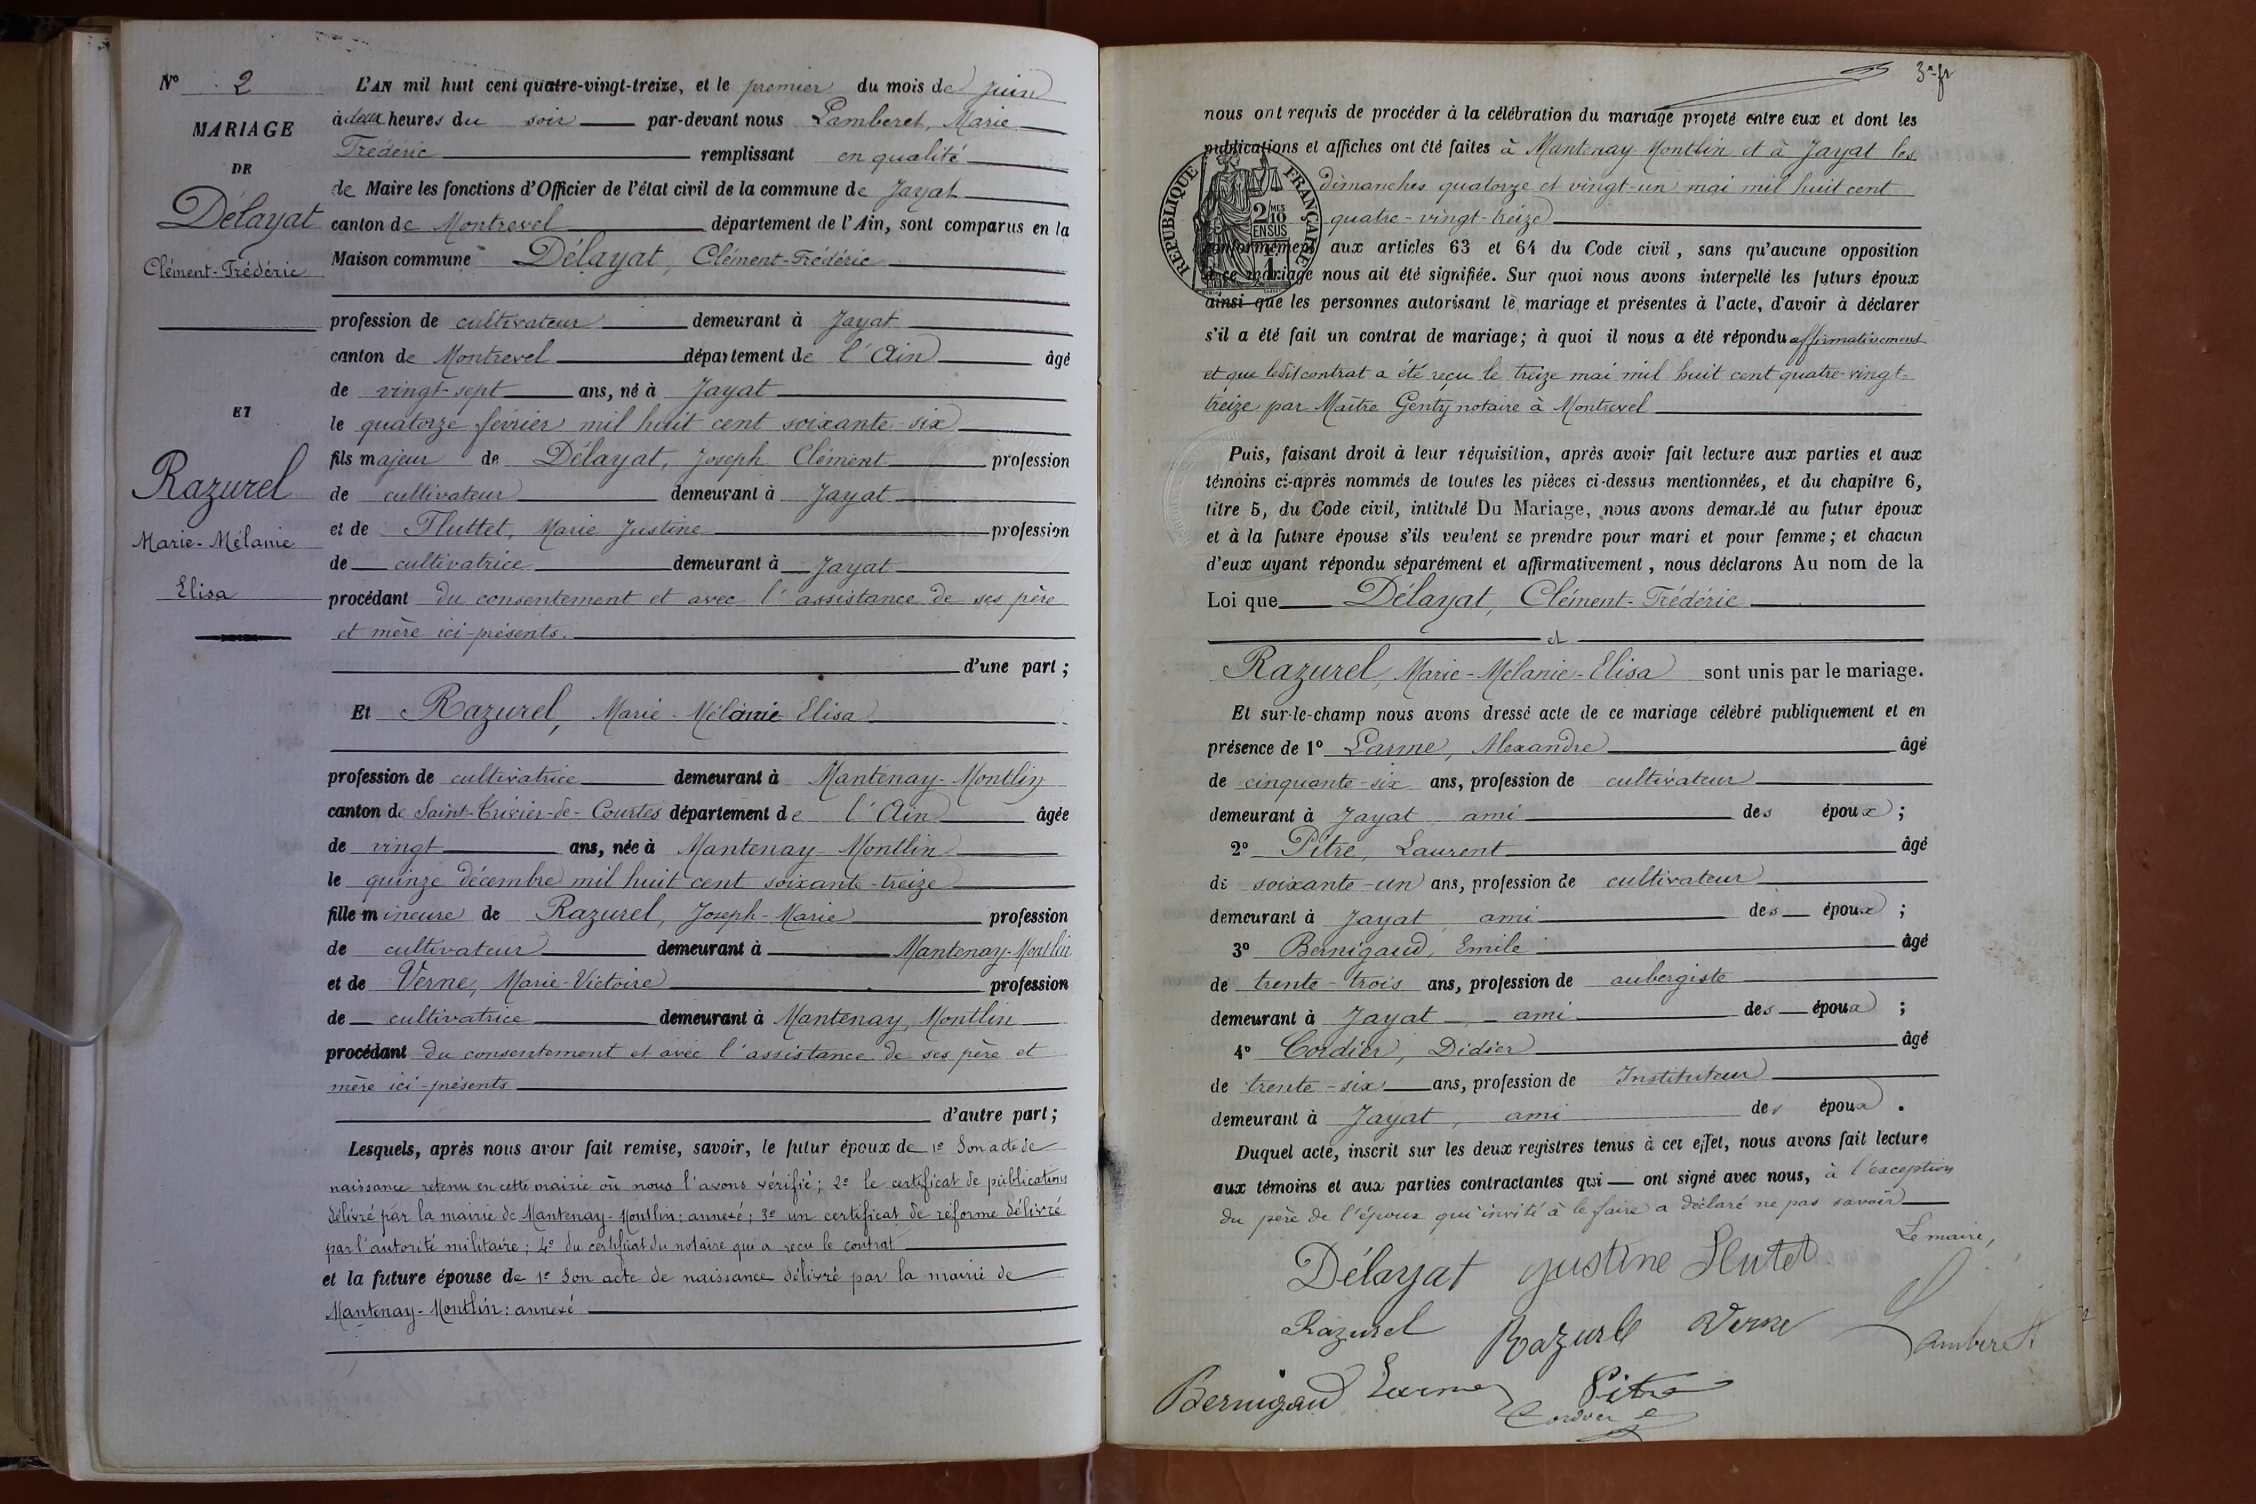 N° 2
MARIAGE
DE
Délayat
Clément-Frédéric
ET
Razurel
Marie-Mélanie
Elisa
L'AN mil huit cent quatre-vingt-treize, et le premier du mois de juin
à deux heures du soir par-devant nous Lamberet, Marie
Frédéric remplissant en qualité
de Maire les fonctions d'Officier de l'état civil de la commune de Jayat
canton de Montrevel département de l'Ain, sont comparus en la
Maison commune Délayat, Clément-Frédéric
profession de cultivateur demeurant à Jayat
canton de Montrevel département de l'Ain âgé
de vingt-sept ans, né à Jayat
le quatorze février mil huit cent soixante-six
fils majeur de Délayat, Joseph Clément profession
de cultivateur demeurant à Jayat
et de Fluttet, Marie Justine profession
de cultivatrice demeurant à Jayat
procédant du consentement et avec l'assistance de ses père
et mère ici-présents.
d'une part ;
Et Razurel, Marie-Mélanie Elisa
profession de cultivatrice demeurant à Mantenay-Montlin
canton de Saint-Trivier-de-Courtes département de l'Ain âgée
de vingt ans, née à Mantenay-Montlin
le quinze décembre mil huit cent soixante-treize
fille mineure de Razurel, Joseph-Marie profession
de cultivateur demeurant à Mantenay-Montlin
et de Verne, Marie-Victoire profession
de cultivatrice demeurant à Mantenay, Montlin
procédant du consentement et avec l'assistance de ses père et
mère ici-présents
d'autre part ;
Lesquels, après nous avoir fait remise, savoir, le futur époux de 1° Son acte de
naissance retenu en cette mairie où nous l'avons vérifié ; 2° le certificat de publications
délivré par la mairie de Mantenay-Montlin : annexé ; 3° un certificat de réforme délivré
par l'autorité militaire ; 4° du certificat du notaire qui a reçu le contrat
et la future épouse de 1° Son acte de naissance délivré par la mairie de
Mantenay-Montlin : annexé
nous ont requis de procéder à la célébration du mariage projeté entre eux et dont les
publications et affiches ont été faites à Mantenay Montlin et à Jayat les
dimanches quatorze et vingt-un mai mil huit cent
quatre-vingt-treize
conformément aux articles 63 et 64 du Code civil, sans qu'aucune opposition
à ce mariage nous ait été signifiée. Sur quoi nous avons interpellé les futurs époux
ainsi que les personnes autorisant le mariage et présentes à l'acte, d'avoir à déclarer
s'il a été fait un contrat de mariage ; à quoi il nous a été répondu affirmativement
et que ledit contrat a été reçu le treize mai mil huit cent quatre-vingt-
treize par Maître Genty notaire à Montrevel
RÉPUBLIQUE FRANÇAISE
2/10 MES
EN SUS
1
Puis, faisant droit à leur réquisition, après avoir fait lecture aux parties et aux
témoins ci-après nommés de toutes les pièces ci-dessus mentionnées, et du chapitre 6,
titre 5, du Code civil, intitulé Du Mariage, nous avons demandé au futur époux
et à la future épouse s'ils veulent se prendre pour mari et pour femme ; et chacun
d'eux ayant répondu séparément et affirmativement, nous déclarons Au nom de la
Loi que Délayat, Clément-Frédéric
et
Razurel, Marie-Mélanie-Elisa sont unis par le mariage.
Et sur-le-champ nous avons dressé acte de ce mariage célébré publiquement et en
présence de 1° Larme, Alexandre âgé
de cinquante-six ans, profession de cultivateur
demeurant à Jayat ami des époux ;
2° Pitre, Laurent âgé
de soixante-un ans, profession de cultivateur
demeurant à Jayat ami des époux ;
3° Bernigaud, Emile âgé
de trente-trois ans, profession de aubergiste
demeurant à Jayat ami des époux ;
4° Cordier, Didier âgé
de trente-six ans, profession de Instituteur
demeurant à Jayat, ami des époux .
Duquel acte, inscrit sur les deux registres tenus à cet effet, nous avons fait lecture
aux témoins et aux parties contractantes qui ont signé avec nous, à l'exception
du père de l'époux qui invité à le faire a déclaré ne pas savoir
Le maire,
Délayat Justine Flutet
Razurel Razurel Verne Lamberet
Bernigaud Larme Pitre
Cordier